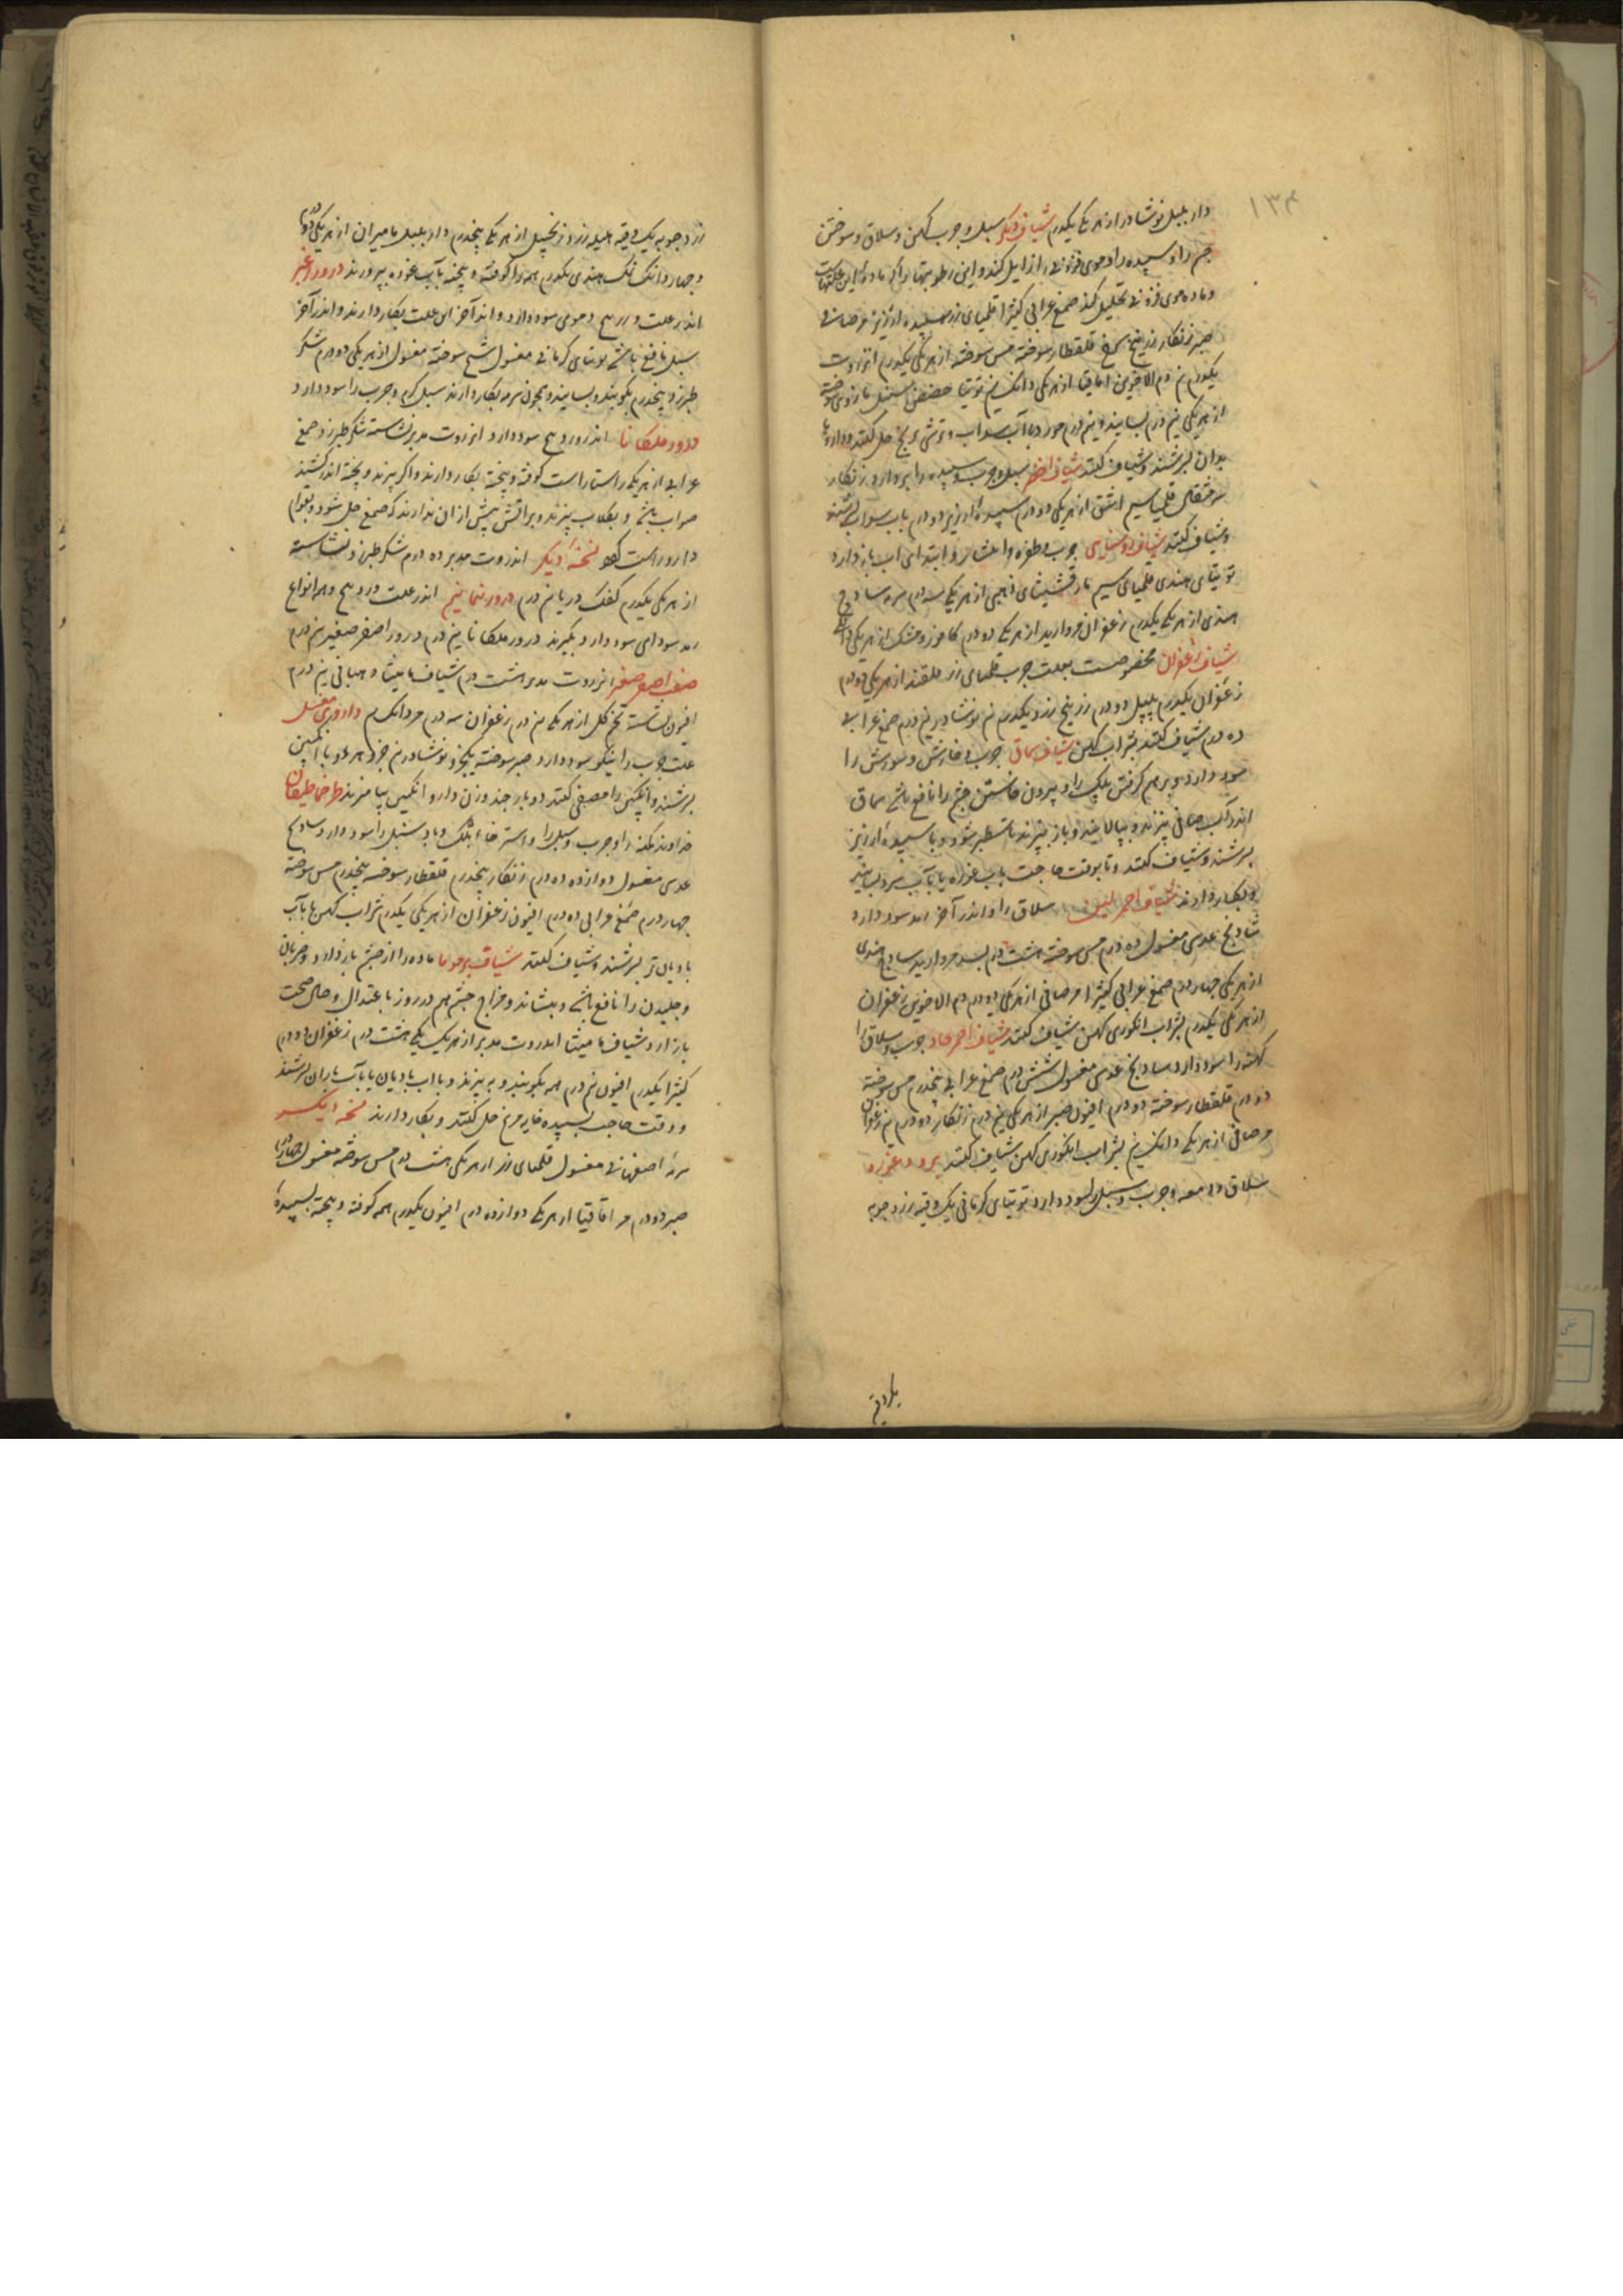 ۱۳۴
دار بلبل نوشادر از هر یکی یکدرم شیاف دیگر سبل و جرب کهن و سلاق و سوختن
چشم را و سپیده را و موی فزونی را زایل کند و این رطوبتها را
و ماده موی فزونی تحلیل کند صمغ عربی کثیرا اقلمیای زر سپیده ارزیز مر صافی
صبر زنگار زرنیخ سرخ قلقطار سوخته مس سوخته از هر یکی یکدرم انزروت
یکدرم نیم دم الاخوین اقاقیا از هر یکی دانک نیم توتیا حضض سنبل مازوی سوخته
از هر یکی نیم درم بسایند و نیم درم آب سداب و ترشی ترنج حل کنند و داروها
بدان بسرشند و شیاف کنند شیاف اخضر سبل و جرب و سپیده را ببرد زنگار
سه مثقال قلیمیا سیم اشق از هر یکی دو درم سپیده ارزیز دو درم بآب سداب بسرشند
و شیاف کنند شیاف جرب و ظفره و انتشار و ابتدای آب باز دارد
توتیای هندی قلمیای سیم مارقشیشای ذهبی از هر یکی سه درم سرمه ساذج
هندی از هر یکی یکدرم زعفران مروارید از هر یکی دو درم کافور و مشک از هر یکی دانکی
شیاف زعفران مخصوصست بعلت جرب قلمیای زر قلقند از هر یکی دو درم
زعفران یکدرم پلپل دو درم زرنیخ زرد یکدرم نیم نوشادر نیم درم صمغ عربی
ده درم شیاف کنند بشراب کهن شیاف سماق جرب و خارش و سوزش را
سود دارد و برهم گرفتن پلک را و بیرون خاستن چشم را نافع باشد سماق
اندر آب صافی بپزند و بپالایند و باز بپزند تا سطبر شود و با سپیده ارزیز
بسرشند و شیاف کنند و تا بوقت حاجت بآب غوره یا بآب سرد بسایند
و بکار دارند شیاف احمر لین سلاق را و اندر آخر رمد سود دارد
شادنج عدسی مغسول ده درم مس سوخته هشت درم بسد مروارید ساذج هندی
از هر یکی چهار درم صمغ عربی کثیرا مر صافی از هر یکی دو درم دم الاخوین زعفران
از هر یکی یکدرم بشراب انگوری کهن شیاف کنند شیاف احمر حاد جرب و سلاق را
کهنه را سود دارد شادنج عدسی مغسول شش درم صمغ عربی پنجدرم مس سوخته
دو درم قلقطار سوخته دو درم افیون صبر از هر یکی نیم درم زنگار دو درم نیم زعفران
مر صافی از هر یکی دانک نیم بشراب انگوری کهن شیاف کنند برود غوره
سلاق و دمعه و جرب و سبل را سود دارد توتیای کرمانی یک وقیه زرد چوبه
زرد چوبه یک وقیه هلیله زرد زنجبیل از هر یکی پنجدرم دار بلبل مامیران از هر یکی دو درم
و چهار دانک نمک هندی یکدرم همه را کوفته و بیخته بآب غوره بپرورند درور اغبر
اندر علت وردینج و موی سود دارد و اندر آخر این علت بکار دارند و اندر آخر
سبل نافع باشد توتیای کرمانی مغسول شیح سوخته مغسول از هر یکی دو درم شکر
طبرزد پنجدرم بکوبند و بسایند و بچون سرمه بکار دارند سبل گرم و جرب را سود دارد
درور ملکانا اندر وردینج سود دارد انزروت مدبر نشاسته شکر طبرزد صمغ
عربی از هر یکی راستاراست کوفته و بیخته بکار دارند و اگر ببرند و پخته اندر کشند
صواب باشد و بگلاب بپزند و بر آتش بیش از آن ندارند که صمغ حل شود و بقوام
دارو راست نسخه دیگر انزروت مدبر ده درم شکر طبرزد نشاسته
از هر یکی یکدرم کفک دریا نیم درم اندر علت وردینج و همه انواع
رمد سودای سود دارد بگیرند درور ملکانا نیم درم درور اصفر صغیر نیم درم
صفت اصفر صغیر انزروت مدبر هشت درم شیاف مامیثا نیم درم
افیون نشاسته تخم گل از هر یکی نیم درم زعفران سه درم مر دانک نیم
علت جرب را نیکو سود دارد صبر سوخته یکجزو نوشادر نیم جزو هر دو با انگبین
بسرشند و انگبین را مصفی کنند دو بار چند وزن دارو انگبین بیامیزند
خداوند حکه را و جرب و سبل را و استرخاء پلک و باد سنبل را سود دارد شادنج
عدسی مغسول دوازده درم زنگار پنجدرم قلقطار سوخته پنجدرم مس سوخته
چهار درم صمغ عربی ده درم افیون زعفران از هر یکی یکدرم شراب کهن یا بآب
بادیان تر بسرشند و شیاف کنند شیاف ماده را از چشم باز دارد و ضربان
و خلیدن را نافع باشد و بنشاند و مزاج چشم هم در روز باعتدال و حال صحت
باز آرد شیاف مامیثا انزروت مدبر از هر یک هشت درم زعفران دو درم
کثیرا یکدرم افیون نیم درم همه بکوبند و ببیزند و بآب بادیان یا بآب باران بسرشند
و وقت حاجت بسپیده خایه مرغ حل کنند و بکار دارند نسخه دیگر
سرمه اصفهانی مغسول قلمیای زر از هر یکی هشت درم مس سوخته مغسول
صبر دو درم مر اقاقیا از هر یکی دوازده درم افیون یکدرم همه کوفته و بیخته بسپیده